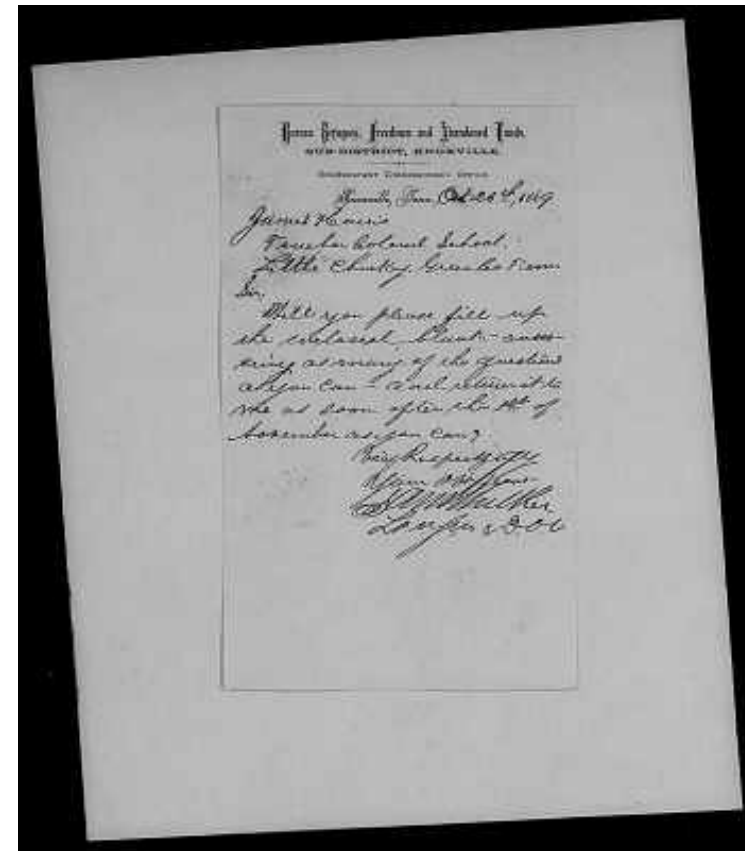 Bureau Refugees, Freedmen and Abandoned Lands,
SUB-DISTRICT, KNOXVILLE.
Knoxville, Tenn. Oct 26th, 1869
James Harris
Teacher Colored School.
Little Chucky Green Co Tenn
Sir,
Will you please fill up
the enclosed blank - answ-
ering as many of the questions
as you can - and return it to
me as soon after the 1st of
November as you can?
Very Respectfully
Your